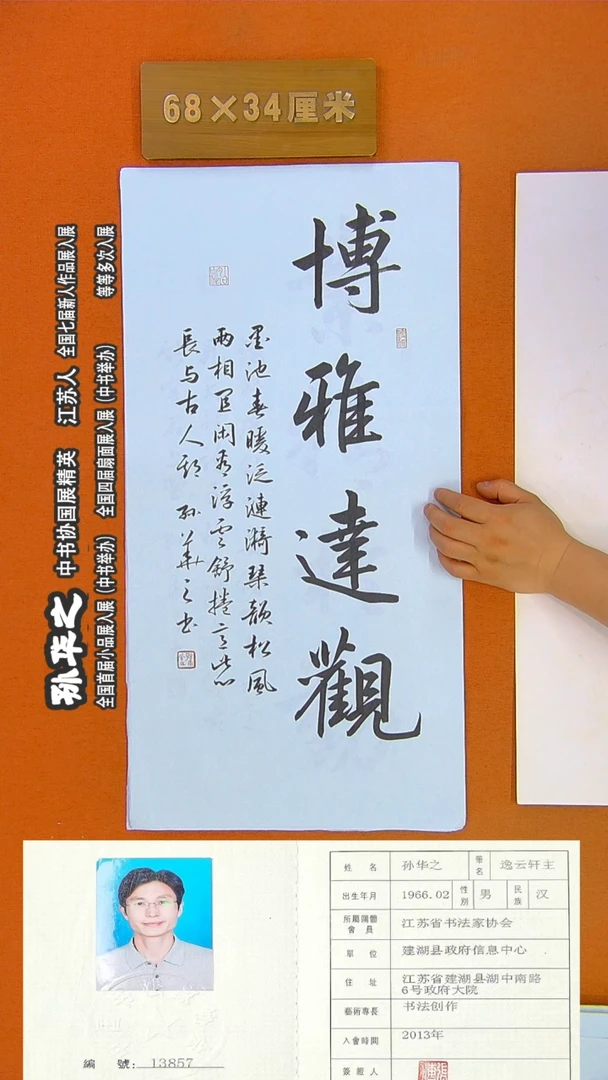 68×34厘米
博雅達觀
墨池春暖泛漣漪琴韻松風
兩相宜闲看浮云舒捲意此心
長与古人期 孙華之书
孙华之 中书协国展精英 江苏人 全国七届新人作品展入展
全国首届小品展入展（中书举办） 全国四届扇面展入展（中书举办） 等等多次入展
編 號：13857
姓 名 孙华之 筆名 逸云轩主
出生年月 1966.02 性別 男 民族 汉
所屬團體會員 江苏省书法家协会
單 位 建湖县政府信息中心
住 址 江苏省建湖县湖中南路6号政府大院
藝術專長 书法创作
入會時間 2013年
簽證人